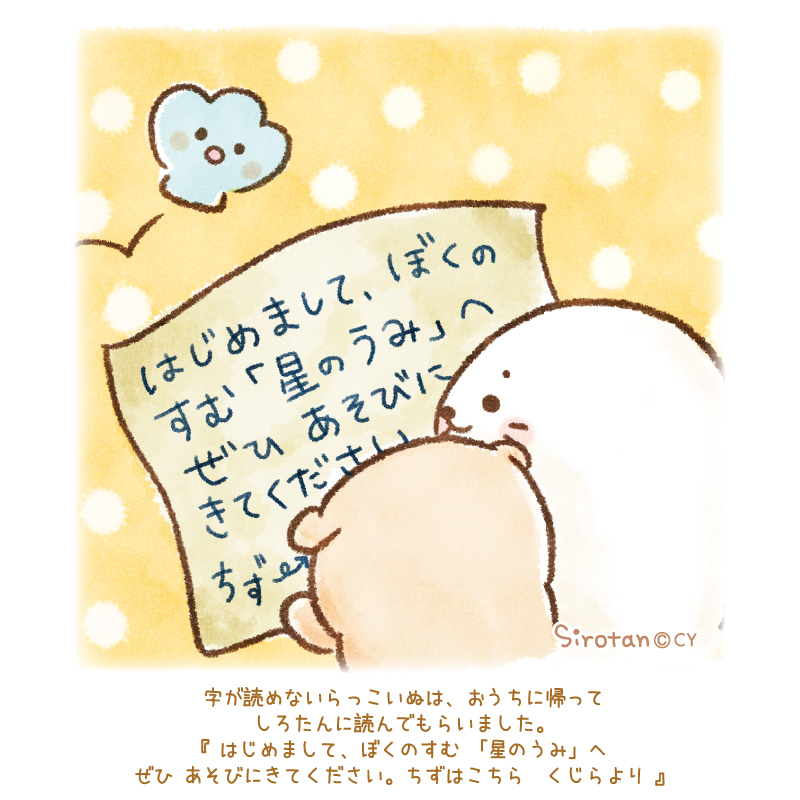 はじめまして、ぼくの
すむ「星のうみ」へ
ぜひ あそびに
きてください
ちず
Sirotan©CY
字が読めないらっこいぬは、おうちに帰って
しろたんに読んでもらいました。
『 はじめまして、ぼくのすむ 「星のうみ」へ
ぜひ あそびにきてください。ちずはこちら　くじらより 』